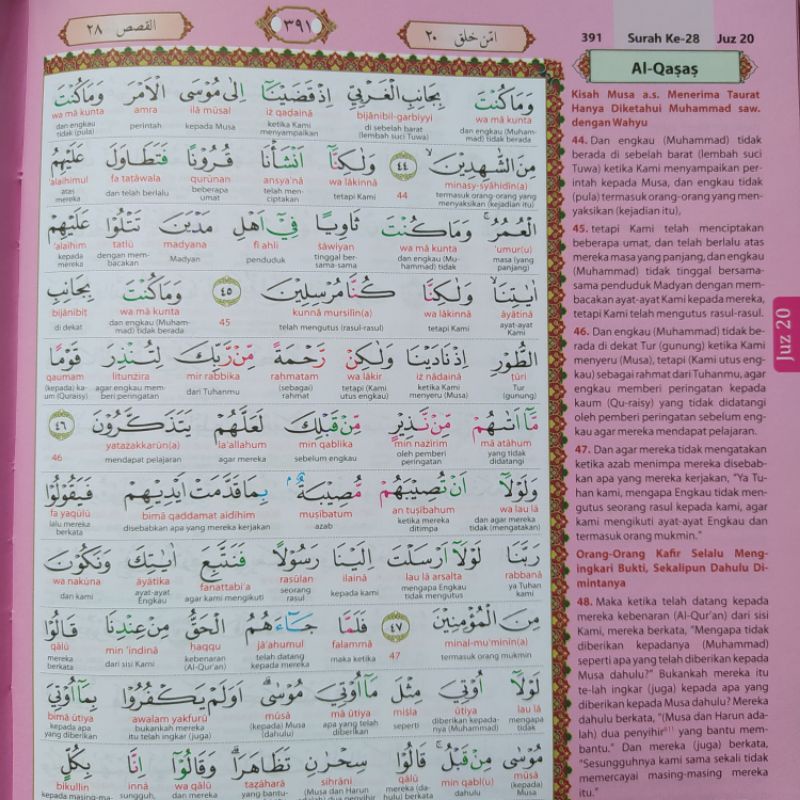 القصص ٢٨
٣٩١
امّن خلق ٢٠
391 Surah Ke-28 Juz 20
Al-Qaṣaṣ
وَمَا كُنْتَ بِجَانِبِ الْغَرْبِيِّ اِذْ قَضَيْنَآ اِلٰى مُوْسَى الْاَمْرَ وَمَا كُنْتَ
wa mā kunta bijānibil-garbiyyi iż qaḍainā ilā mūsal amra wa mā kunta
dan engkau (Muhammad) tidak berada di sebelah barat (lembah suci Tuwa) ketika Kami menyampaikan kepada Musa perintah dan engkau tidak (pula)
مِنَ الشّٰهِدِيْنَ ۙ ٤٤ وَلٰكِنَّآ اَنْشَأْنَا قُرُوْنًا فَتَطَاوَلَ عَلَيْهِمُ
minasy-syāhidīn(a) 44 wa lākinnā ansya'nā qurūnan fa taṭāwala 'alaihimul
termasuk orang-orang yang menyaksikan (kejadian itu) tetapi Kami telah menciptakan beberapa umat dan telah berlalu atas mereka
الْعُمُرُۚ وَمَا كُنْتَ ثَاوِيًا فِيْٓ اَهْلِ مَدْيَنَ تَتْلُوْا عَلَيْهِمْ
'umur(u) wa mā kunta ṡāwiyan fī ahli madyana tatlū 'alaihim
masa (yang panjang) dan engkau (Muhammad) tidak tinggal bersama-sama penduduk Madyan dengan membacakan kepada mereka
اٰيٰتِنَاۙ وَلٰكِنَّا كُنَّا مُرْسِلِيْنَ ٤٥ وَمَا كُنْتَ بِجَانِبِ
āyātinā wa lākinnā kunnā mursilīn(a) 45 wa mā kunta bijānibiṭ
ayat-ayat Kami tetapi Kami telah mengutus (rasul-rasul) dan engkau (Muhammad) tidak berada di dekat
الطُّوْرِ اِذْ نَادَيْنَا وَلٰكِنْ رَّحْمَةً مِّنْ رَّبِّكَ لِتُنْذِرَ قَوْمًا
ṭūri iż nādainā wa lākir rahmatam mir rabbika litunżira qaumam
Tur (gunung) ketika Kami menyeru (Musa) tetapi (Kami utus engkau) (sebagai) rahmat dari Tuhanmu agar engkau memberi peringatan (kepada) kaum (Quraisy)
مَّآ اَتٰىهُمْ مِّنْ نَّذِيْرٍ مِّنْ قَبْلِكَ لَعَلَّهُمْ يَتَذَكَّرُوْنَ ٤٦
mā atāhum min nażīrim min qablika la'allahum yatażakkarūn(a) 46
yang tidak didatangi oleh pemberi peringatan sebelum engkau agar mereka mendapat pelajaran
وَلَوْلَآ اَنْ تُصِيْبَهُمْ مُّصِيْبَةٌ ۢبِمَا قَدَّمَتْ اَيْدِيْهِمْ فَيَقُوْلُوْا
wa lau lā an tuṣībahum muṣībatum bimā qaddamat aidīhim fa yaqūlū
dan agar mereka tidak (mengatakan) ketika mereka ditimpa azab disebabkan apa yang mereka kerjakan lalu mereka berkata
رَبَّنَا لَوْلَآ اَرْسَلْتَ اِلَيْنَا رَسُوْلًا فَنَتَّبِعَ اٰيٰتِكَ وَنَكُوْنَ
rabbanā lau lā arsalta ilainā rasūlan fanattabi'a āyātika wa nakūna
ya Tuhan kami mengapa Engkau tidak mengutus kepada kami seorang rasul agar kami mengikuti ayat-ayat Engkau dan kami
مِنَ الْمُؤْمِنِيْنَ ٤٧ فَلَمَّا جَاۤءَهُمُ الْحَقُّ مِنْ عِنْدِنَا قَالُوْا
minal-mu'minīn(a) 47 falammā jā'ahumul haqqu min 'indinā qālū
termasuk orang mukmin maka ketika telah datang kepada mereka kebenaran (Al-Qur'an) dari sisi Kami mereka berkata
لَوْلَآ اُوْتِيَ مِثْلَ مَآ اُوْتِيَ مُوْسٰىۗ اَوَلَمْ يَكْفُرُوْا بِمَآ اُوْتِيَ
lau lā ūtiya miṡla mā ūtiya mūsā awalam yakfurū bimā ūtiya
mengapa tidak diberikan kepadanya (Muhammad) seperti apa yang telah diberikan (kepada) Musa (dahulu) bukankah mereka itu telah ingkar (juga) kepada apa yang diberikan
مُوْسٰى مِنْ قَبْلُۚ قَالُوْا سِحْرٰنِ تَظَاهَرَاۗ وَقَالُوْٓا اِنَّا بِكُلٍّ
mūsā min qabl(u) qālū siḥrāni taẓāharā wa qālū innā bikullin
(kepada) Musa dahulu mereka (dahulu) berkata (Musa dan Harun adalah) dua penyihir yang bantu- dan mereka sungguh, kepada masing-ma-
Kisah Musa a.s. Menerima Taurat
Hanya Diketahui Muhammad saw.
dengan Wahyu
44. Dan engkau (Muhammad) tidak
berada di sebelah barat (lembah suci
Tuwa) ketika Kami menyampaikan per-
intah kepada Musa, dan engkau tidak
(pula) termasuk orang-orang yang men-
yaksikan (kejadian itu),
45. tetapi Kami telah menciptakan
beberapa umat, dan telah berlalu atas
mereka masa yang panjang, dan engkau
(Muhammad) tidak tinggal bersama-
sama penduduk Madyan dengan mem-
bacakan ayat-ayat Kami kepada mereka,
tetapi Kami telah mengutus rasul-rasul.
46. Dan engkau (Muhammad) tidak be-
rada di dekat Tur (gunung) ketika Kami
menyeru (Musa), tetapi (Kami utus eng-
kau) sebagai rahmat dari Tuhanmu, agar
engkau memberi peringatan kepada
kaum (Qu-raisy) yang tidak didatangi
oleh pemberi peringatan sebelum eng-
kau agar mereka mendapat pelajaran.
47. Dan agar mereka tidak mengatakan
ketika azab menimpa mereka disebab-
kan apa yang mereka kerjakan, "Ya Tu-
han kami, mengapa Engkau tidak men-
gutus seorang rasul kepada kami, agar
kami mengikuti ayat-ayat Engkau dan
termasuk orang mukmin."
Orang-Orang Kafir Selalu Meng-
ingkari Bukti, Sekalipun Dahulu Di-
mintanya
48. Maka ketika telah datang kepada
mereka kebenaran (Al-Qur'an) dari sisi
Kami, mereka berkata, "Mengapa tidak
diberikan kepadanya (Muhammad)
seperti apa yang telah diberikan kepada
Musa dahulu?" Bukankah mereka itu
te-lah ingkar (juga) kepada apa yang
diberikan kepada Musa dahulu? Mereka
dahulu berkata, "(Musa dan Harun ada-
lah) dua penyihir yang bantu mem-
bantu." Dan mereka (juga) berkata,
"Sesungguhnya kami sama sekali tidak
memercayai masing-masing mereka
itu."
Juz 20